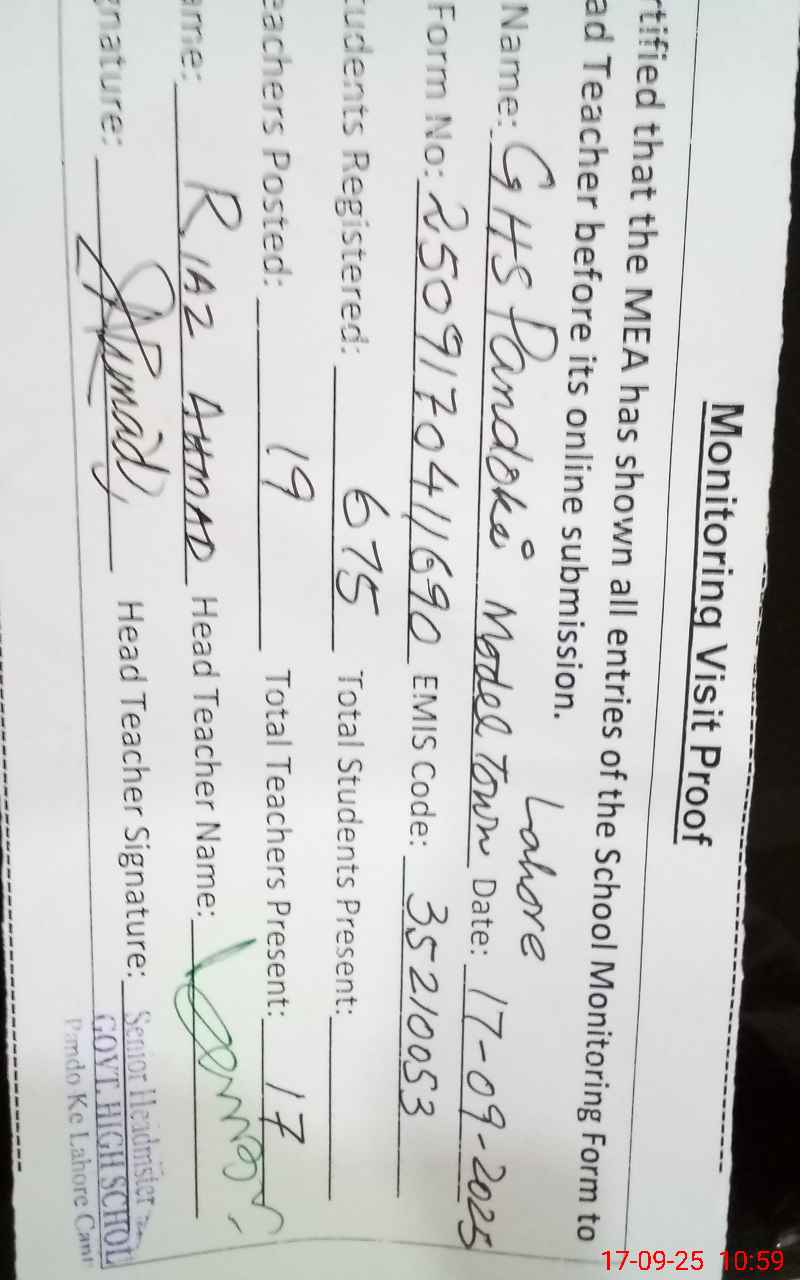 Monitoring Visit Proof
rtified that the MEA has shown all entries of the School Monitoring Form to
ad Teacher before its online submission.
Lahore
Name: GHS Pandoki Model Town Date: 17-09-2025
Form No: 2509170411690 EMIS Code: 35210053
tudents Registered: 675 Total Students Present:
eachers Posted: 19 Total Teachers Present: 17
ame: RIAZ AHMAD Head Teacher Name:
gnature: Head Teacher Signature:
Senior Headmister
GOVT. HIGH SCHOL
Pando Ke Lahore Cant
17-09-25 10:59